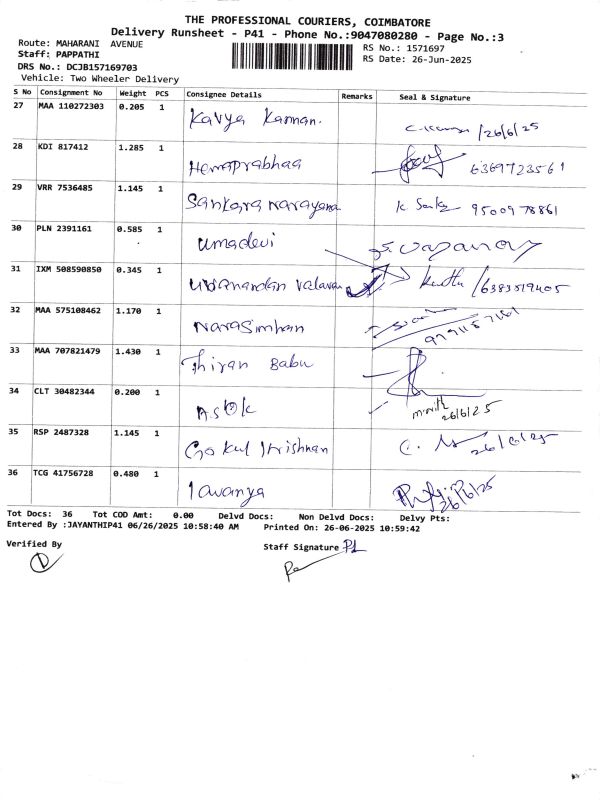 THE PROFESSIONAL COURIERS, COIMBATORE
Delivery Runsheet - P41 - Phone No.:9047080280 - Page No.:3
Route: MAHARANI AVENUE
RS No.: 1571697
Staff: PAPPATHI
RS Date: 26-Jun-2025
DRS No.: DCJB157169703
Vehicle: Two Wheeler Delivery
S No Consignment No Weight PCS Consignee Details Remarks Seal & Signature
27 MAA 110272303 0.205 1 Kavya Kannan. /26/6/25
28 KDI 817412 1.285 1 Hemaprabhaa 6369723561
29 VRR 7536485 1.145 1 Sankara narayana K 9500978861
30 PLN 2391161 0.585 1 umadevi
31 IXM 508590850 0.345 1 /6383519405
32 MAA 575108462 1.170 1 Narasimhan
33 MAA 707821479 1.430 1 Thiran Babu
34 CLT 30482344 0.200 1 ASOK 26/6/25
35 RSP 2487328 1.145 1 Gokul krishnan 26/6/25
36 TCG 41756728 0.480 1 lavanya 26/6/25
Tot Docs: 36 Tot COD Amt: 0.00 Delvd Docs: Non Delvd Docs: Delvy Pts:
Entered By :JAYANTHIP41 06/26/2025 10:58:40 AM Printed On: 26-06-2025 10:59:42
Verified By
Staff Signature